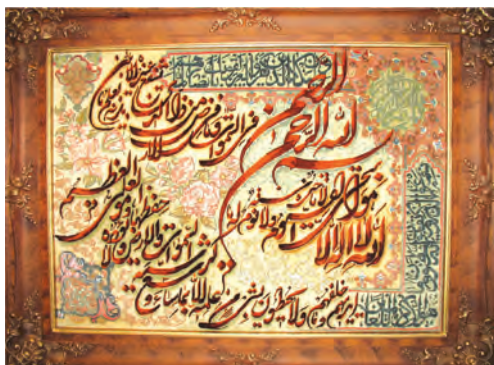 بسم الله الرحمن الرحیم
الله لا اله الا هو الحی القیوم
لا تأخذه سنة ولا نوم له ما
فی السموات وما فی الارض من ذا الذی
یشفع عنده الا باذنه یعلم ما بین
ایدیهم وما خلفهم ولا یحیطون بشیء من
علمه الا بما شاء و
سع کرسیه
السموات والارض ولا یؤده
حفظهما وهو
العلی العظیم
وما هو الا ذکر للعالمین